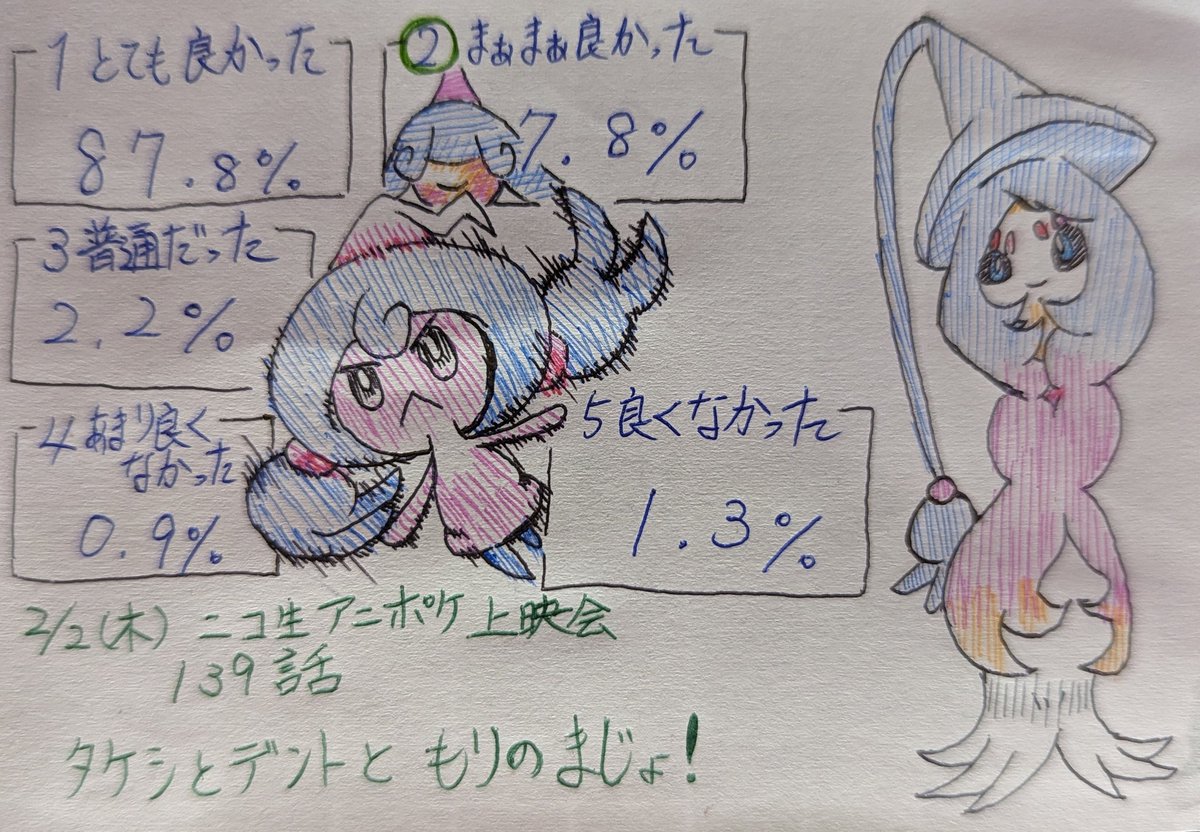 1 とても良かった
87.8%
② まぁまぁ良かった
7.8%
3 普通だった
2.2%
4 あまり良く
なかった
0.9%
5 良くなかった
1.3%
2/2(木) ニコ生アニポケ上映会
139話
タケシとデントと もりのまじょ!